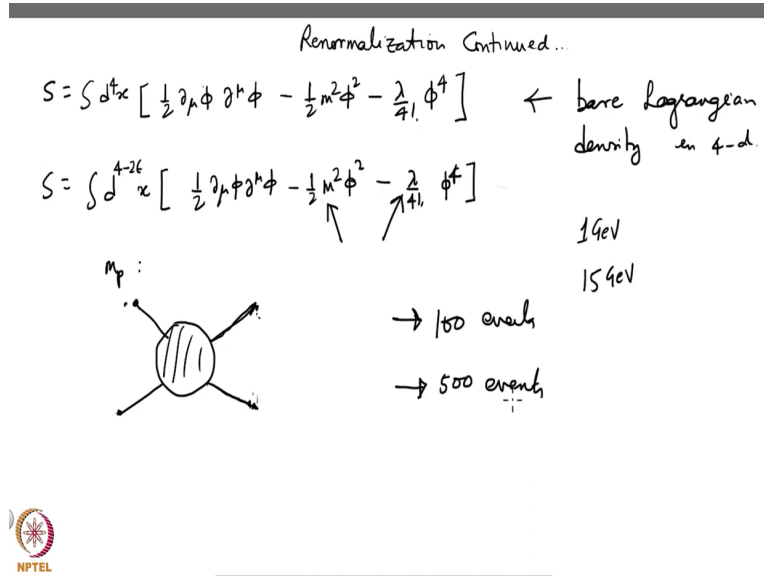 Renormalization Continued...
S = ∫ d⁴x [ ½ ∂μϕ ∂^μϕ − ½ m²ϕ² − λ/4! ϕ⁴ ] ← bare Lagrangian density in 4-d.
S = ∫ d^{4-2ϵ}x [ ½ ∂μϕ∂^μϕ − ½ m²ϕ² − λ/4! ϕ⁴ ]
1 GeV
15 GeV
m_p :
→ 100 events
→ 500 events
NPTEL